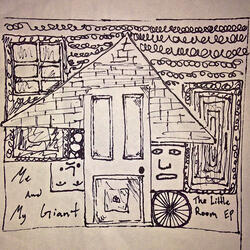 Me
And
My Giant
The Little
Room EP